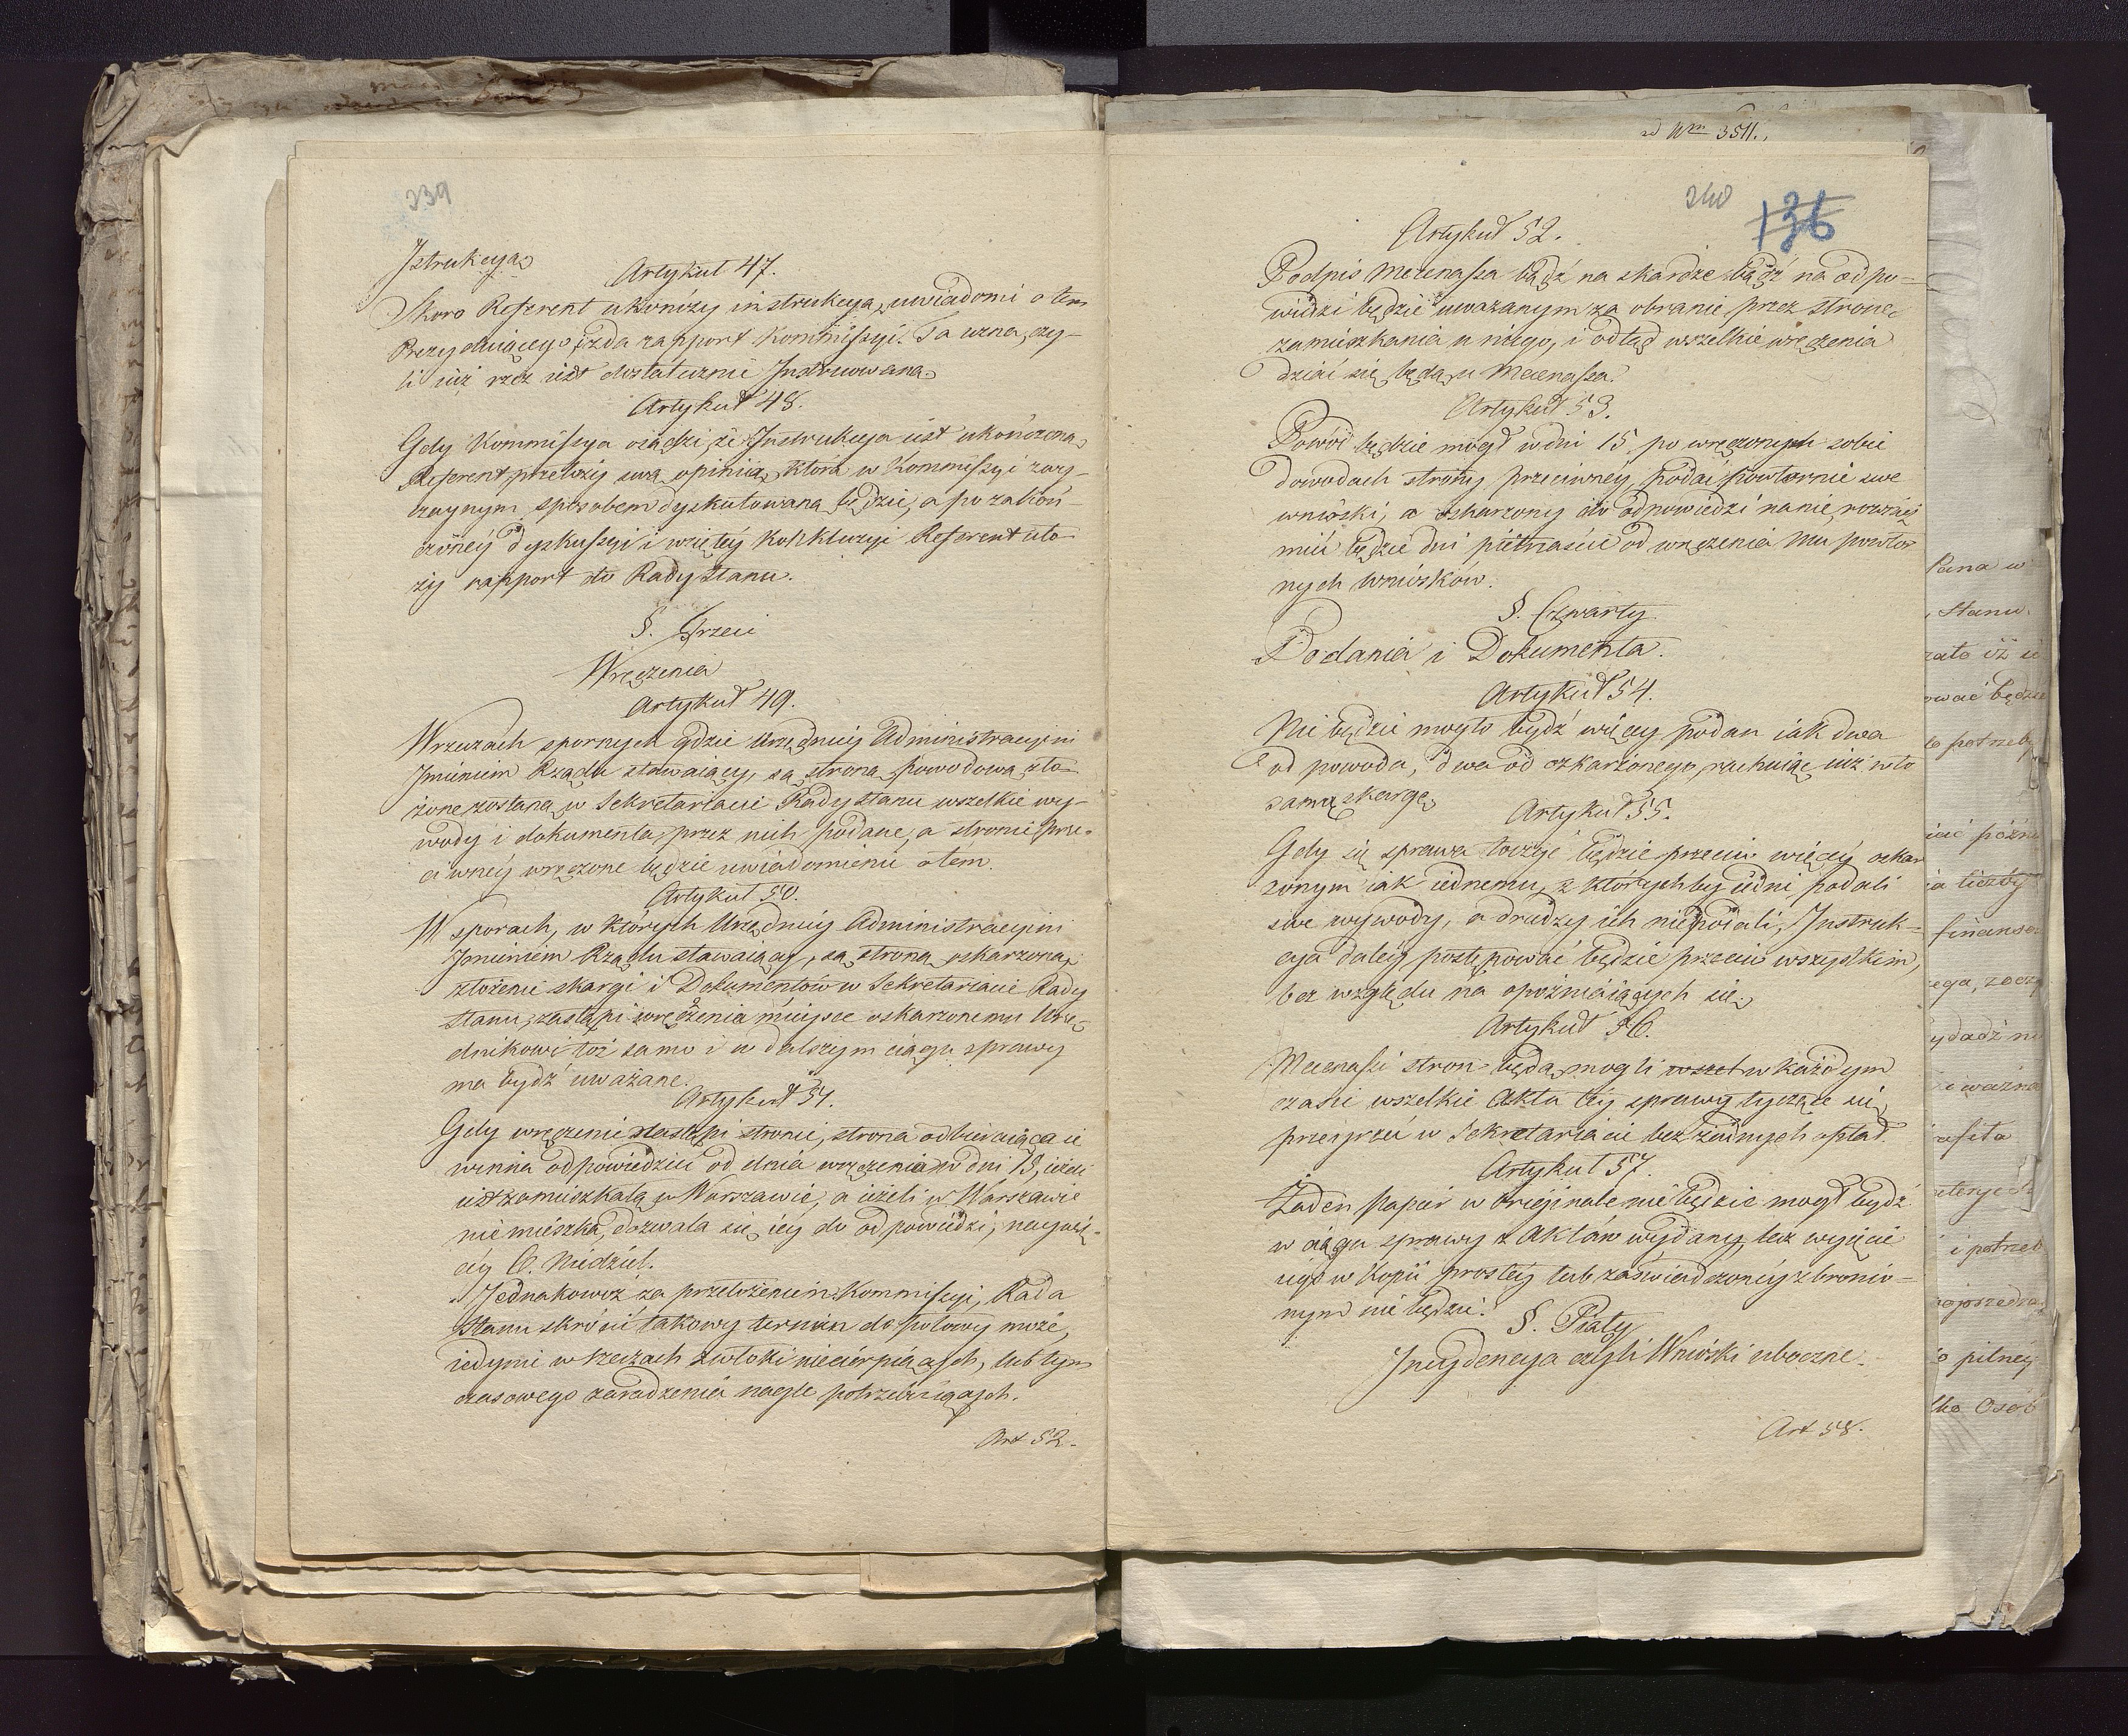 339
Jstrukcya
Artykuł 47.
Skoro Referent ukończy instrukcyą, uwiadomi o tem
Prezyduiącego, zda rapport Kommissyi. Ta uzna, czy-
li iuż rzecz iest dostatecznie Jnstruowana.
Artykuł 48.
Gdy Kommissya osądzi, że Jnstrukcya iest ukończona,
Referent przełoży swą opiniią, która w Kommissyi zwy-
czaynym sposobem dyskutowana będzie, a po zakoń-
czoney dyskussyi i wziętey Konkluzyi Referent uło-
ży rapport do Rady Stanu.
§. Trzeci
Wręczenia
Artykuł 49.
W rzeczach spornych gdzie Urzędnicy Administracyini
Jmieniem Rządu stawaiący, są stroną powodową, zło-
żone zostaną w Sekretariacie Rady Stanu wszelkie wy-
wody i dokumenta przez nich podane, a stronie prze-
ciwney wręczone będzie uwiadomienie o tém.
Artykuł 50.
W sporach, w których Urzędnicy Administracyini
Jmieniem Rządu stawaiący, są stroną oskarzoną,
złożenie skargi i Dokumentów w Sekretariacie Rady
Stanu, zastąpi wręczenia mieysce oskarzonemu Urzę-
dnikowi toż samo i w dalszym ciągu sprawy
ma bydź uważane.
Artykuł 51.
Gdy wręczenie nastąpi stronie, strona odbieraiąca ie
winna odpowiedzieć od dnia wręczenia w dni 15, ieżeli
iest zamieszkałą w Warszawie, a ieżeli w Warszawie
nie mieszka, dozwala się iey do odpowiedzi, naywię-
cey 6. Niedziel.
Jednakowoż za przełożeniem Kommissyi, Rada
Stanu skrócić takowy termin do połowy może,
iedynie w rzeczach zwłoki niecierpiących, lub tym
czasowego zaradzenia nagle potrzebuiących.
Art 52.
ad Nrm 3511.
240
136
Artykuł 52.
Podpis Mecenassa bądź na skardze bądź na odpo-
wiedzi będzie uważanym za obranie przez stronę
zamieszkania u niego, i odtąd wszelkie wręczenia
dziać się będą u Mecenassa.
Artykuł 53.
Powód będzie mógł w dni 15 po wręczonych sobie
dowodach strony przeciwney, podać powtornie swe
wnioski, a oskarzony do odpowiedzi na nie, rozu
mieć będzie dni piętnaście od wręczenia Mu powtor
nych wniosków.
§. Czwarty
Podania i Dokumenta.
Artykuł 54.
Nie będzie mogło bydź więcey podan iak dwa
od powoda, dwa od ozkarżonego, rachuiąc iuż w to
samą skargę,
Artykuł 55.
Gdy się sprawa toczyć będzie przeciw więcey oskar
żonym iak iednemu, z którychby iedni podali
swe wywody, a drudzy ich niepodali, Jnstruk-
cya daley postępować będzie przeciw wszystkim,
bez względu na opoźniaiących się.
Artykuł 56.
Mecenassi stron będą mogli w każdym
czasie wszelkie Akta tey sprawy tyczące się
przeyrzeć w Sekretariacie bez żadnych opłat.
Artykuł 57.
Żaden Papier w Oryginale nie będzie mogł bydź
w ciągu sprawy z Aktów wydany, lecz wyięcie
iego w Kopii prostey lub zaświadczoney zbronio-
nym nie będzie.
§. Piąty
Jncydencya czyli Wnioski uboczne.
Art 58.
Pana w
Stanu.
ować będzie
potrzeby
liczby
finanso
ważna
i potrzeb
pilney
Osób